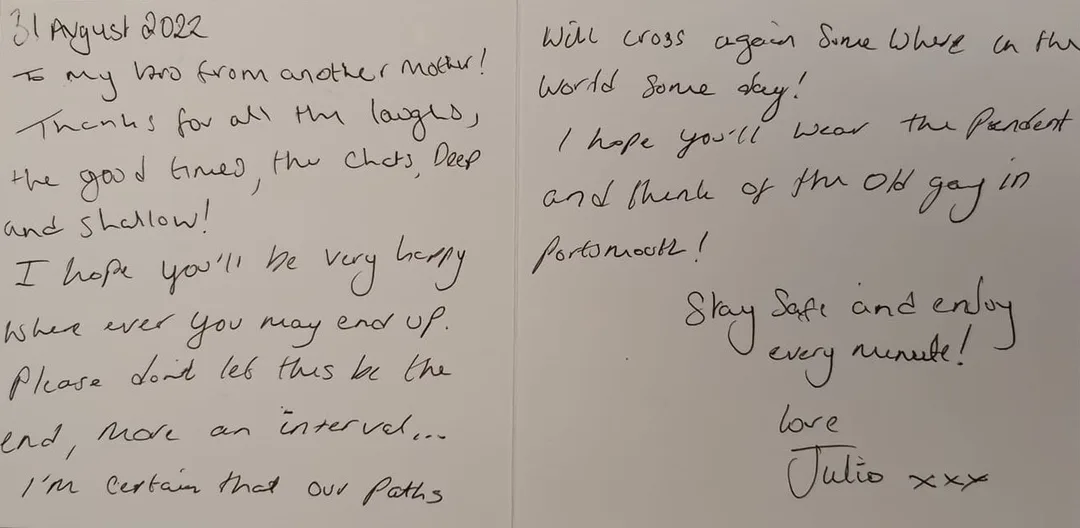 31 August 2022
To my bro from another Mother!
Thanks for all the laughs,
the good times, the chats, Deep
and shallow!
I hope you'll be very happy
Where ever you may end up.
Please don't let this be the
end, More an interval...
I'm Certain that our Paths
Will cross again Some Where in the
World Some day!
I hope you'll wear the Pendent
and think of the Old gay in
Portsmouth!
Stay Safe and enjoy
every minute!
love
Julio xxx